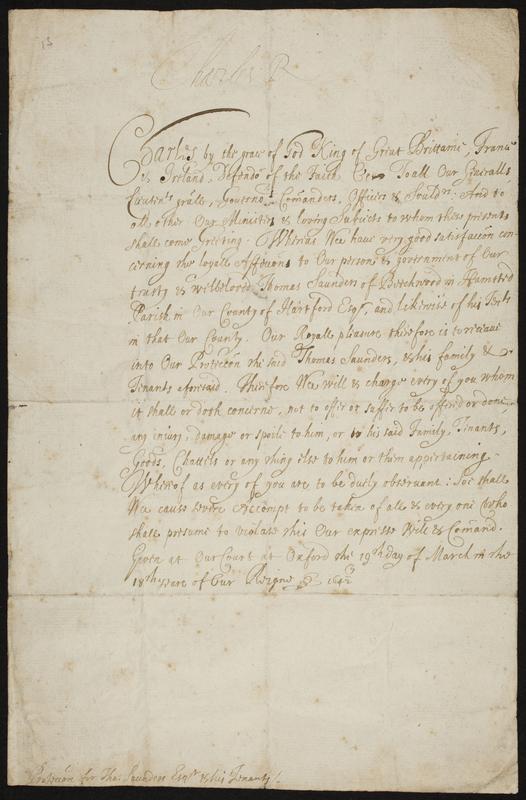 13
Charles R
Charles by the grace of God King of Great Brittaine, France
& Ireland, Defendor of the Faith &c To all Our Generalls
Lieuten^ts gralls, Governo^rs Comanders, Officers & Sould^rs: And to
all other Our Ministers & loving Subiects to whom these presents
shall come Greeting. Whereas Wee have very good satisfaccon con-
cerning the loyall Affeccons to Our person & government of Our
trusty & welbeloved Thomas Saunders of Beechwood in Hamsted
Parish in Our County of Hartford Esq^r, and likewise of his
in that Our County. Our Royall pleasure therefore is to receave
into Our Proteccon the said Thomas Saunders, & his family &
Tenants aforesaid. Therefore Wee will & charge every of you whom
it shall or doth concerne, not to offer or suffer to be offered or done
any iniury, damage or spoile to him, or to his said Family, Tenants,
Goods, Chattells or any thing else to him or them appertaining.
Whereof as every of you are to be duely observant: Soe shall
Wee cause severe Accompt to be taken of all & every one who
shall presume to violate this Our expresse Will & Comand.
Given at Our Court at Oxford the 19th day of March in the
18th yeare of Our Reigne 1642
3
Proteccon for Tho: Saunders Esq^r & his Tenants